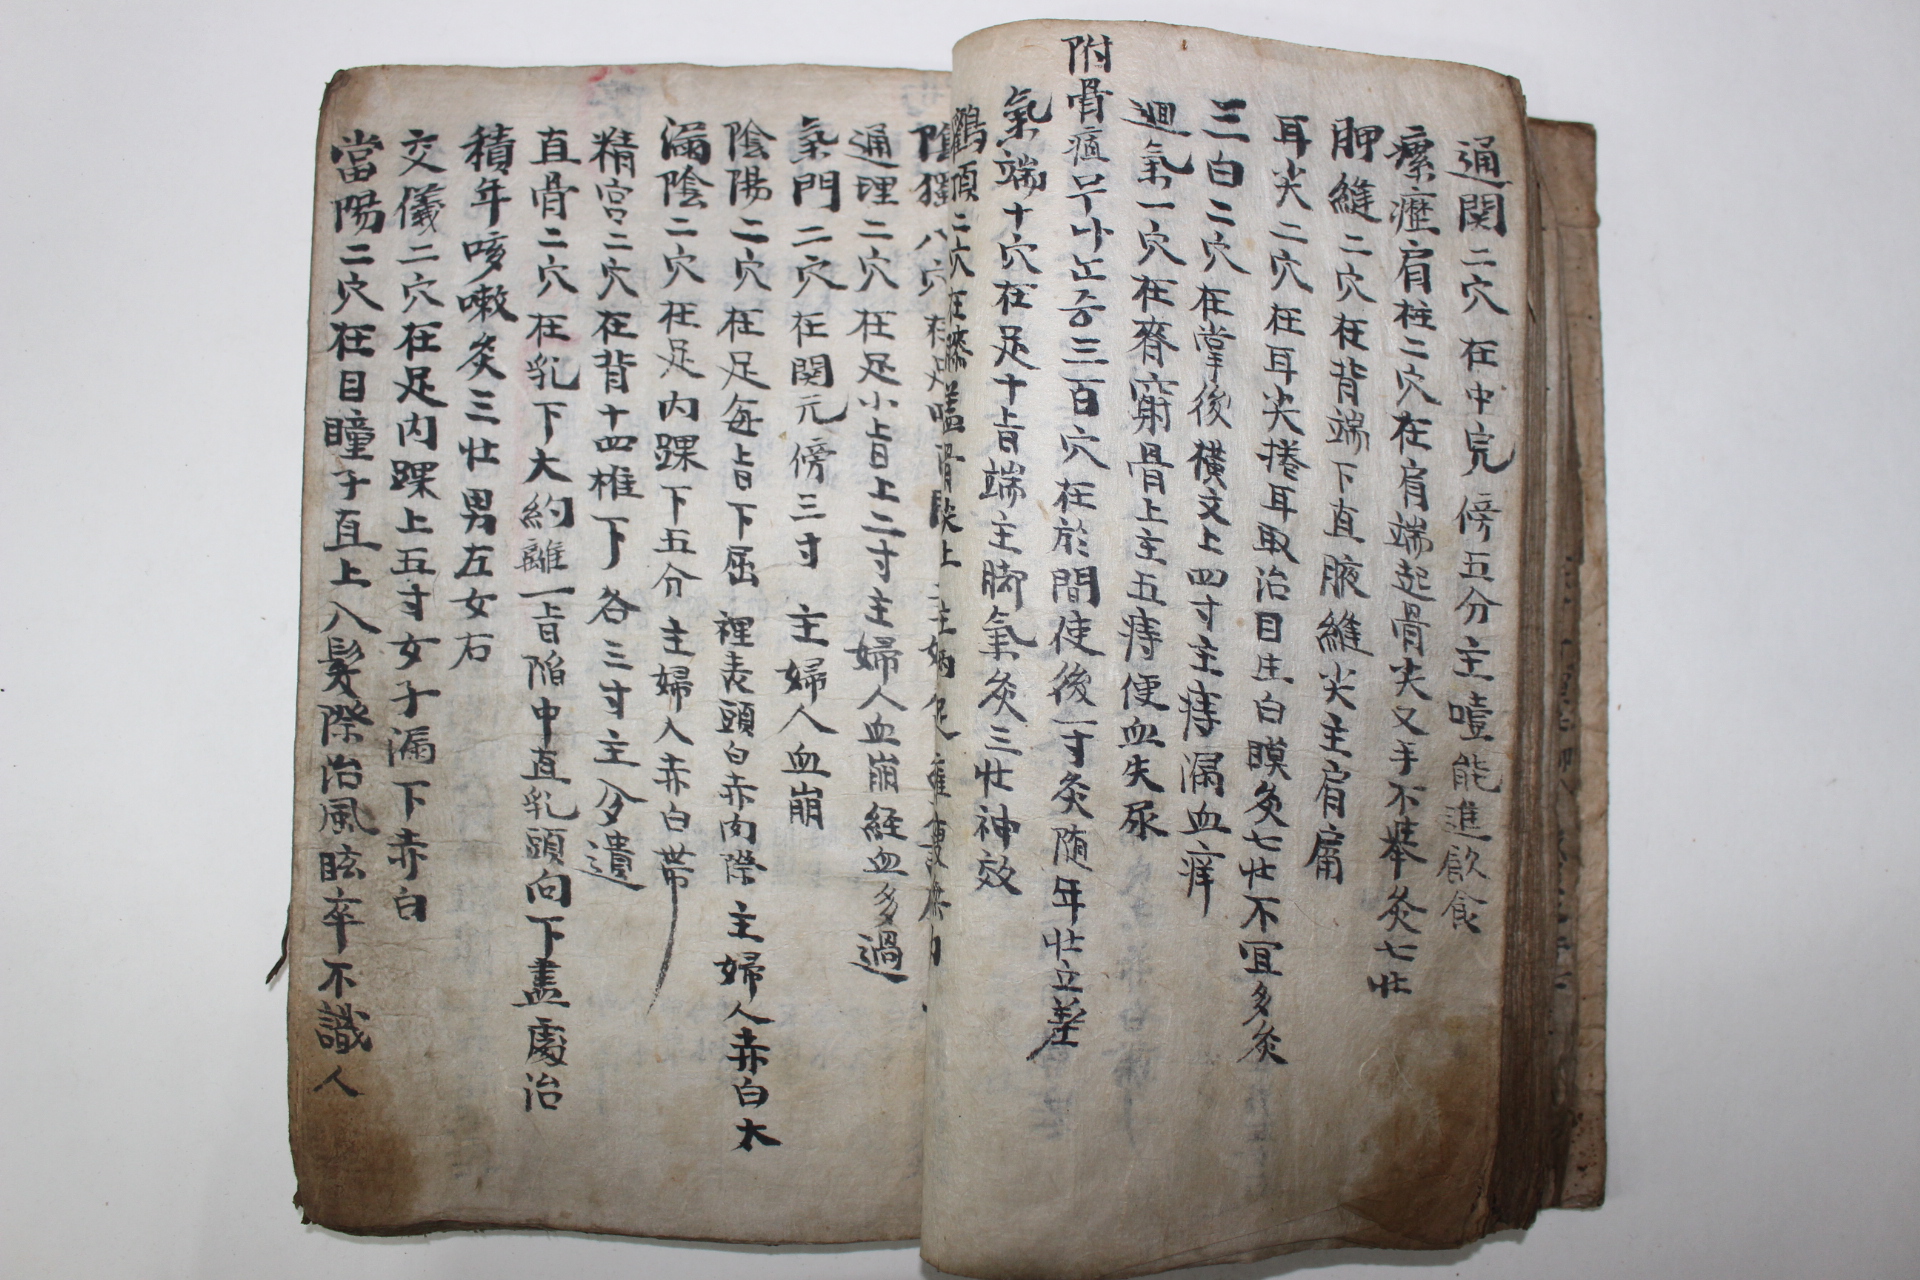 通関二穴 在中完傍五分主噎能進飮食
瘰癧肩柱二穴在肩端起骨尖又手不擧灸七壮
胛縫二穴在背端下直腋縫尖主肩
耳尖二穴在耳尖捲耳取治目生白膜灸七壮不宜多灸
三白二穴在掌後横文上四寸主痔漏血痒
迴氣一穴在脊窮骨上主五痔便血失尿
附骨疽무나는증三百穴在於間使後一寸灸随年壮立差
氣端十穴在足十旨端主脚氣灸三壮神效
鶴頂二穴在膝盖骨尖上主
陰獨八穴在足
通理二穴 在足小旨上二寸主婦人血崩経血多過
氣門二穴 在関元傍三寸 主婦人血崩
陰陽二穴在足每旨下屈裡表頭白赤肉際主婦人赤白太
漏陰二穴在足内踝下五分主婦人赤白帶
精宮二穴在背十四椎下各三寸主夢遺
直骨二穴在乳下大約離一旨陷中直乳頭向下盡處治
積年咳嗽灸三壮男左女右
交儀二穴在足内踝上五寸女子漏下赤白
當陽二穴在目瞳子直上入髮際治風眩卒不識人